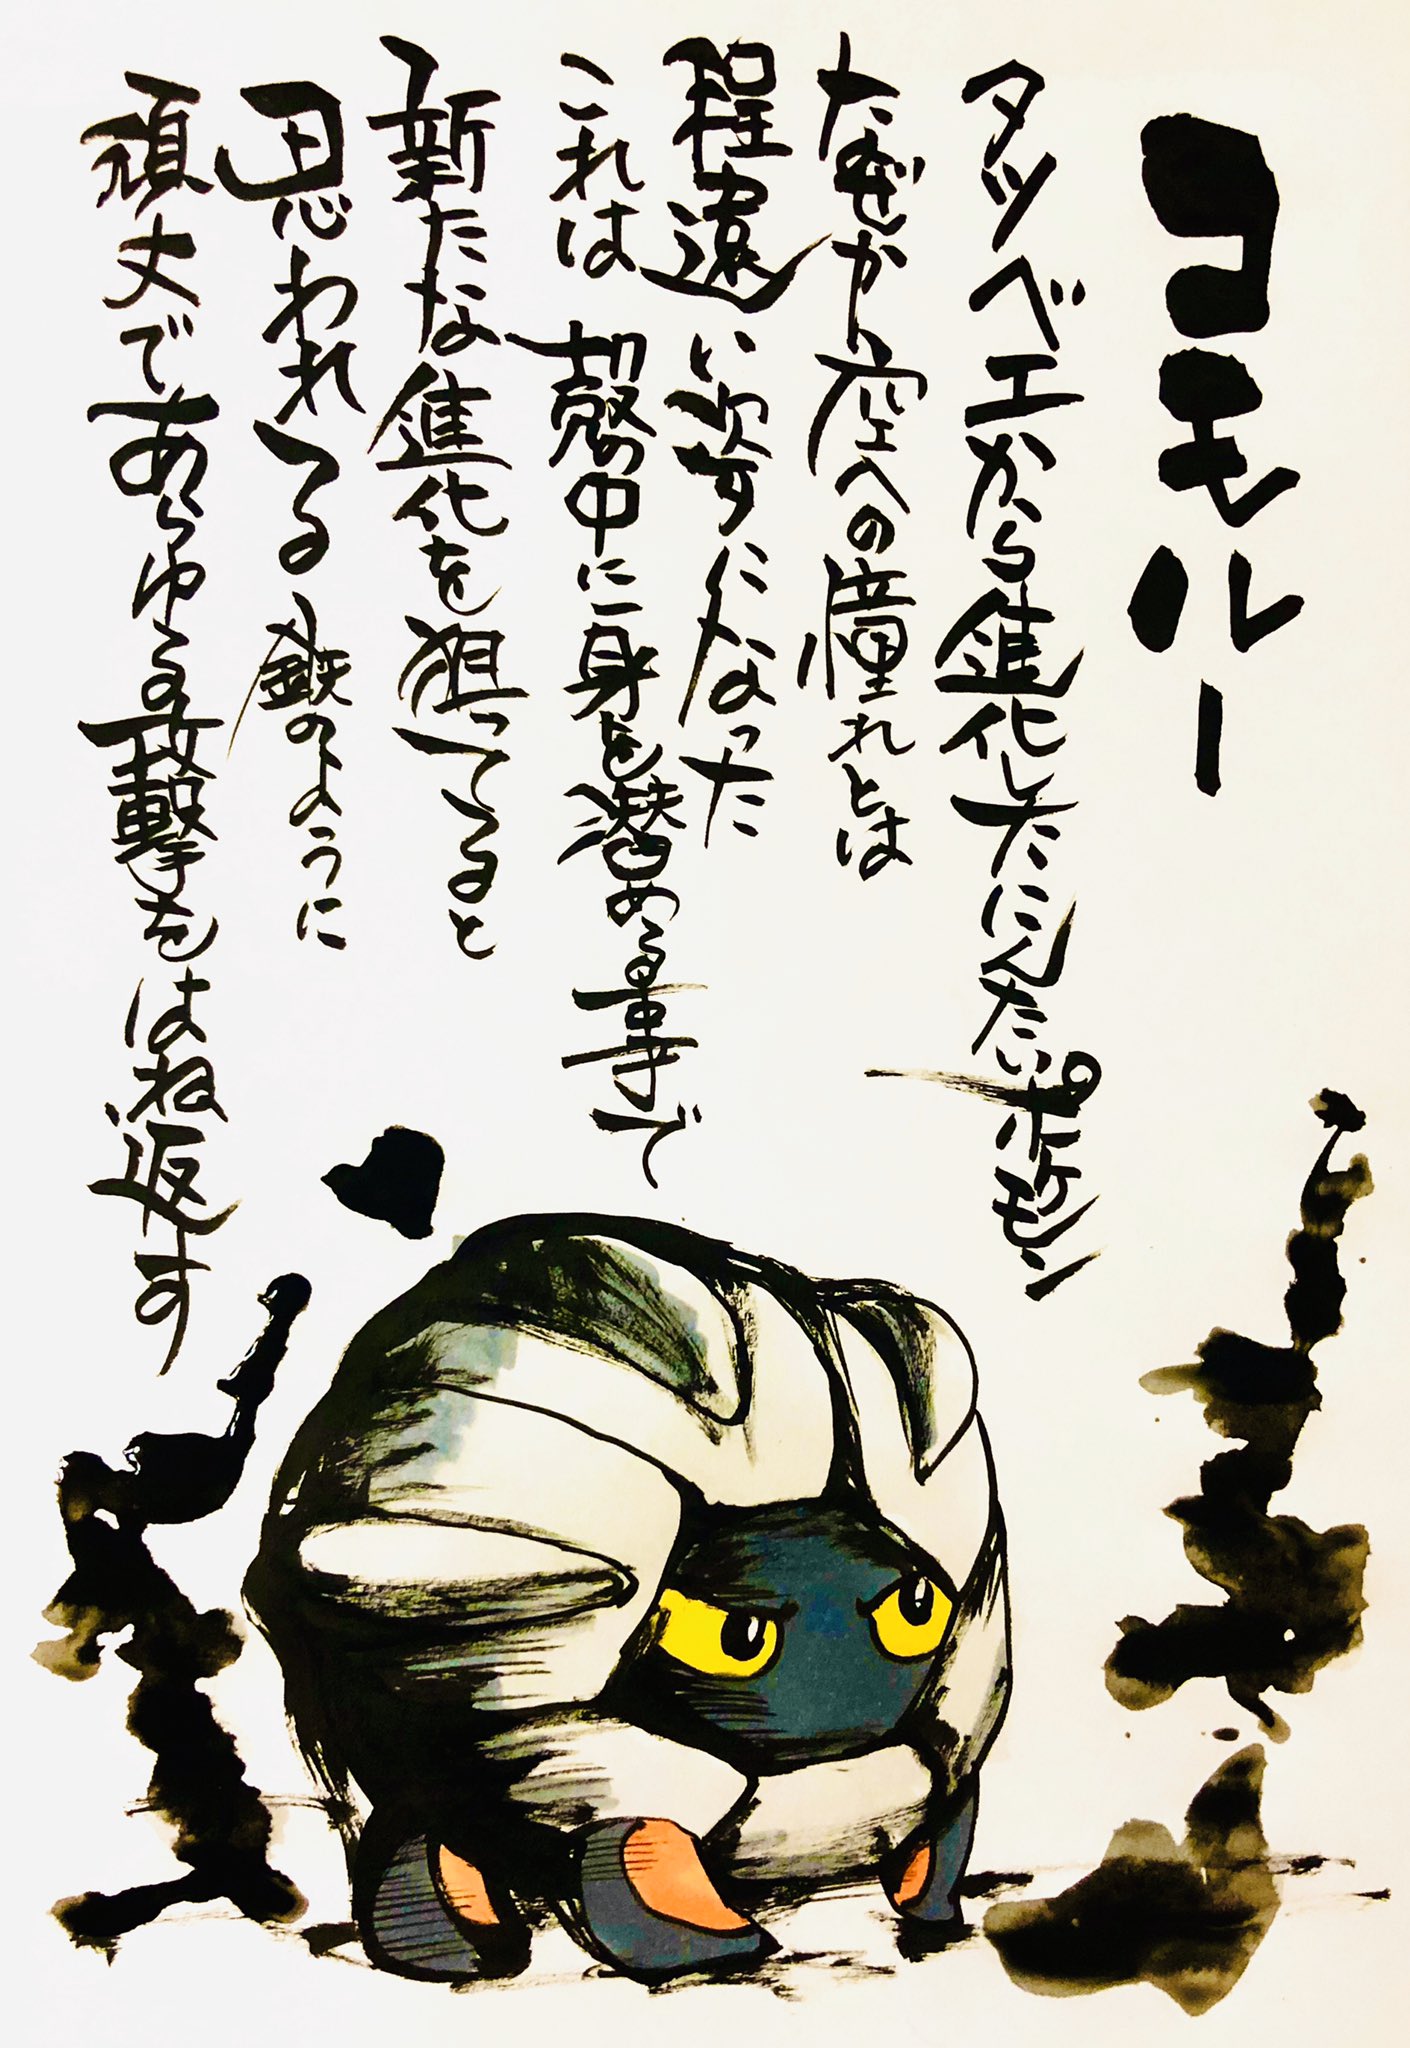 コモルー
タツベエから進化したにんたいポケモン
なぜか空への憧れとは
程遠い姿すになった
これは殻の中に身を潜める事で
新たな進化を狙ってると
思われてる鉄のように
頑丈であらゆる攻撃をはね返す